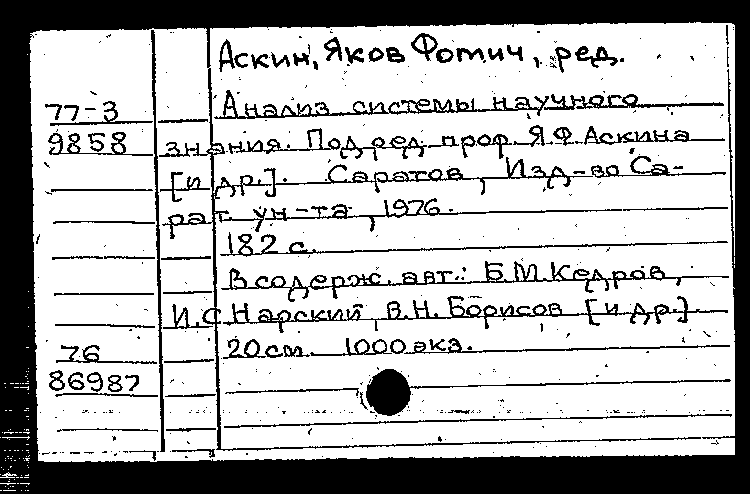 Аскин, Яков Фомич, ред.
77-3 Анализ системы научного
9858 знания. Под ред. проф. Я.Ф. Аскина
[и др.]. Саратов, Изд-во Са-
рат. ун-та, 1976.
182 с.
В содерж. авт.: Б.М. Кедров,
И.С. Нарский, В.Н. Борисов [и др.]
76 20 см. 1000 экз.
86987